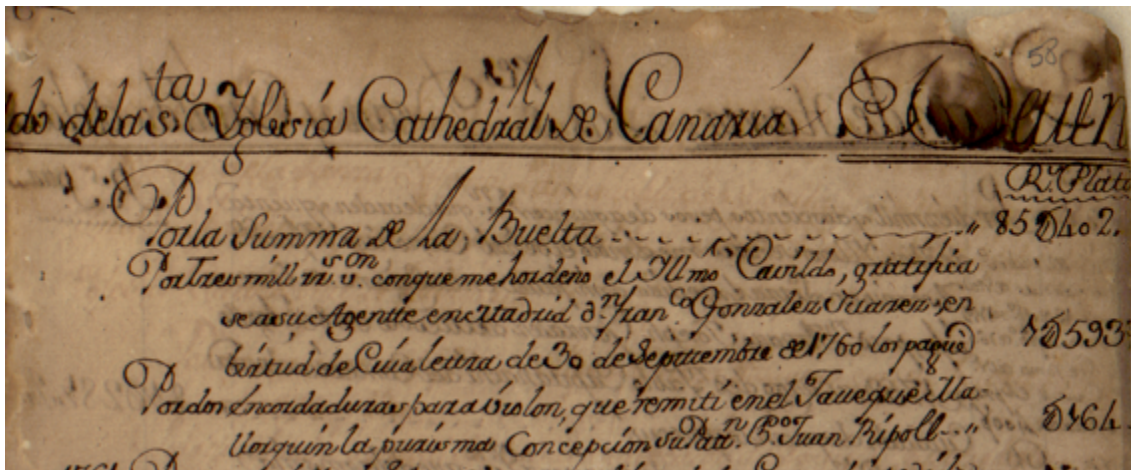 58
de la S.ta Yglesía Cathedral de Canaria
R.s Plata
Por la Summa de la Buelta " 85D402.
Por tres mill rr.s v.on con que me hordenó el Yllmo. Cavildo, gratifica
se a su Agentte en Madrid d.n Fran.co Gonzalez Suarez en
bírtud de Cuía lettra de 30 de Septiembre de 1760 los pagué 1D593
Por dos Encordaduras para víolon, que remití en el Taveque Ma-
llorquín la purísma Concepción su Patt.n Juan Rípoll " D164.